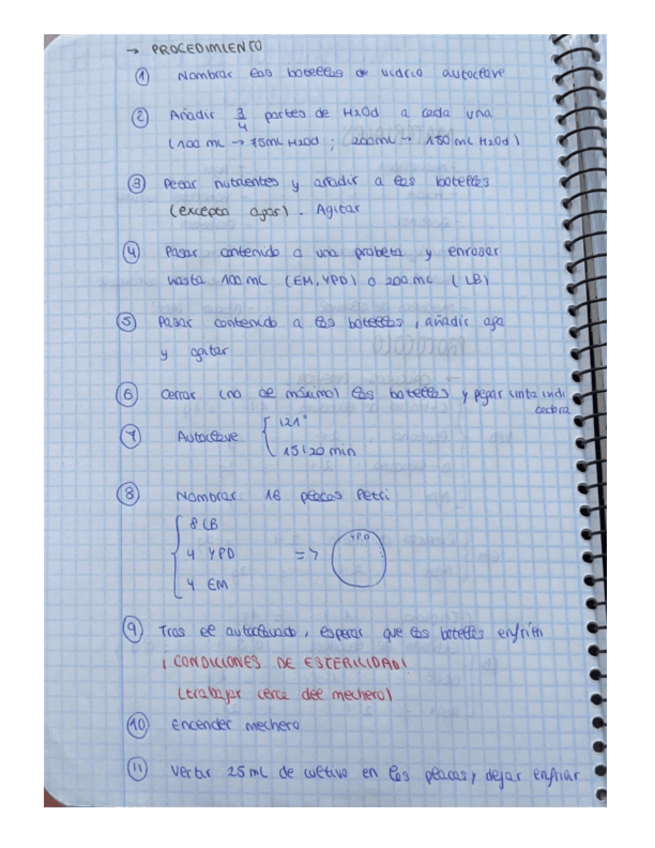 → PROCEDIMIENTO
① Nombrar las botellas de vidrio autoclave
② Añadir 3/4 partes de H2Od a cada una
(100 mL → 75mL H2Od ; 200mL → 150mL H2Od)
③ Pesar nutrientes y añadir a las botellas
(excepto agar). Agitar
④ Pasar contenido a una probeta y enrasar
hasta 100 mL (EM, YPD) o 200 mL (LB)
⑤ Pasar contenido a las botellas, añadir aga
y gitar
⑥ Cerrar (no al máximo) las botellas y pegar cinta indi
cadora
⑦ Autoclave { 121°
15(20 min
⑧ Nombrar 16 placas Petri
{ 8 LB
4 YPD => YPD
4 EM
⑨ Tras el autoclavado, esperar que las botellas enfríen
¡CONDICIONES DE ESTERILIDAD!
(trabajar cerca del mechero)
⑩ Encender mechero
⑪ Verter 25 mL de cultivo en las placas y dejar enfriar